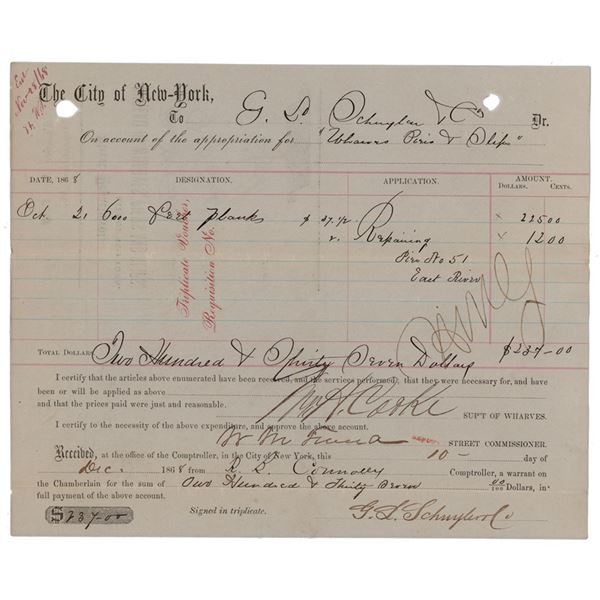 Ent
Nov 28/68
The City of New-York,
To G. L. Schuyler & Co Dr.
On account of the appropriation for "Wharves Piers & Slips"
DATE, 1868 DESIGNATION. APPLICATION. AMOUNT.
DOLLARS. CENTS.
Oct. 21 6000 feet planks $ 37.1/2 Repairing 225 00
Pier No 51 12 00
East River
Triplicate Voucher,
Requisition No.
TOTAL DOLLARS, Two Hundred & Thirty Seven Dollars $237-00
I certify that the articles above enumerated have been received, and the services performed; that they were necessary for, and have
been or will be applied as above
and that the prices paid were just and reasonable. Cooke SUP'T OF WHARVES.
I certify to the necessity of the above expenditure, and approve the above account.
STREET COMMISSIONER.
Received, at the office of the Comptroller, in the City of New York, this 10- day of
Dec. 1868 from R. B. Connolly Comptroller, a warrant on
the Chamberlain for the sum of Two Hundred & Thirty Seven 00/100 Dollars, in
full payment of the above account.
$237-00 Signed in triplicate. G. L. Schuyler & Co